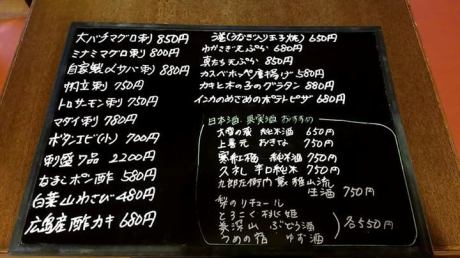 大バチマグロ刺 850円
ミナミマグロ刺 800円
自家製〆サバ刺 880円
帆立刺 750円
トロサーモン刺 750円
マダイ刺 780円
ボタンエビ(小) 700円
刺盛7品 2200円
なまこポン酢 580円
白葉山わさび 480円
広島産酢カキ 680円
(うなぎ入り玉子焼) 650円
わかさぎ天ぷら 680円
真たち天ぷら 850円
カスベホッペ唐揚げ 580円
カキと木の子のグラタン 880円
インカのめざめのポテトピザ 680円
日本酒、果実酒 おすすめ
純米酒 650円
上喜元 750円
寒紅梅 純米酒 750円
久礼 辛口純米 750円
九郎左衛門 雅山流
生酒 750円
梨のリキュール
とろこく桃姫
ぶどう酒
うめの宿 ゆず酒
各550円